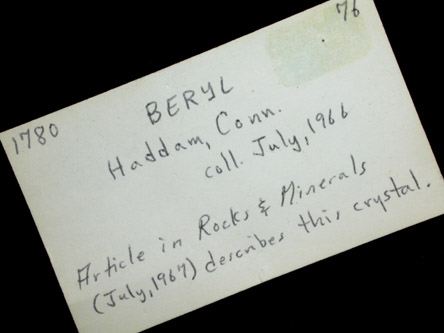 76
1780
BERYL
Haddam, Conn.
coll. July, 1966
Article in Rocks & Minerals
(July, 1967) describes this crystal.